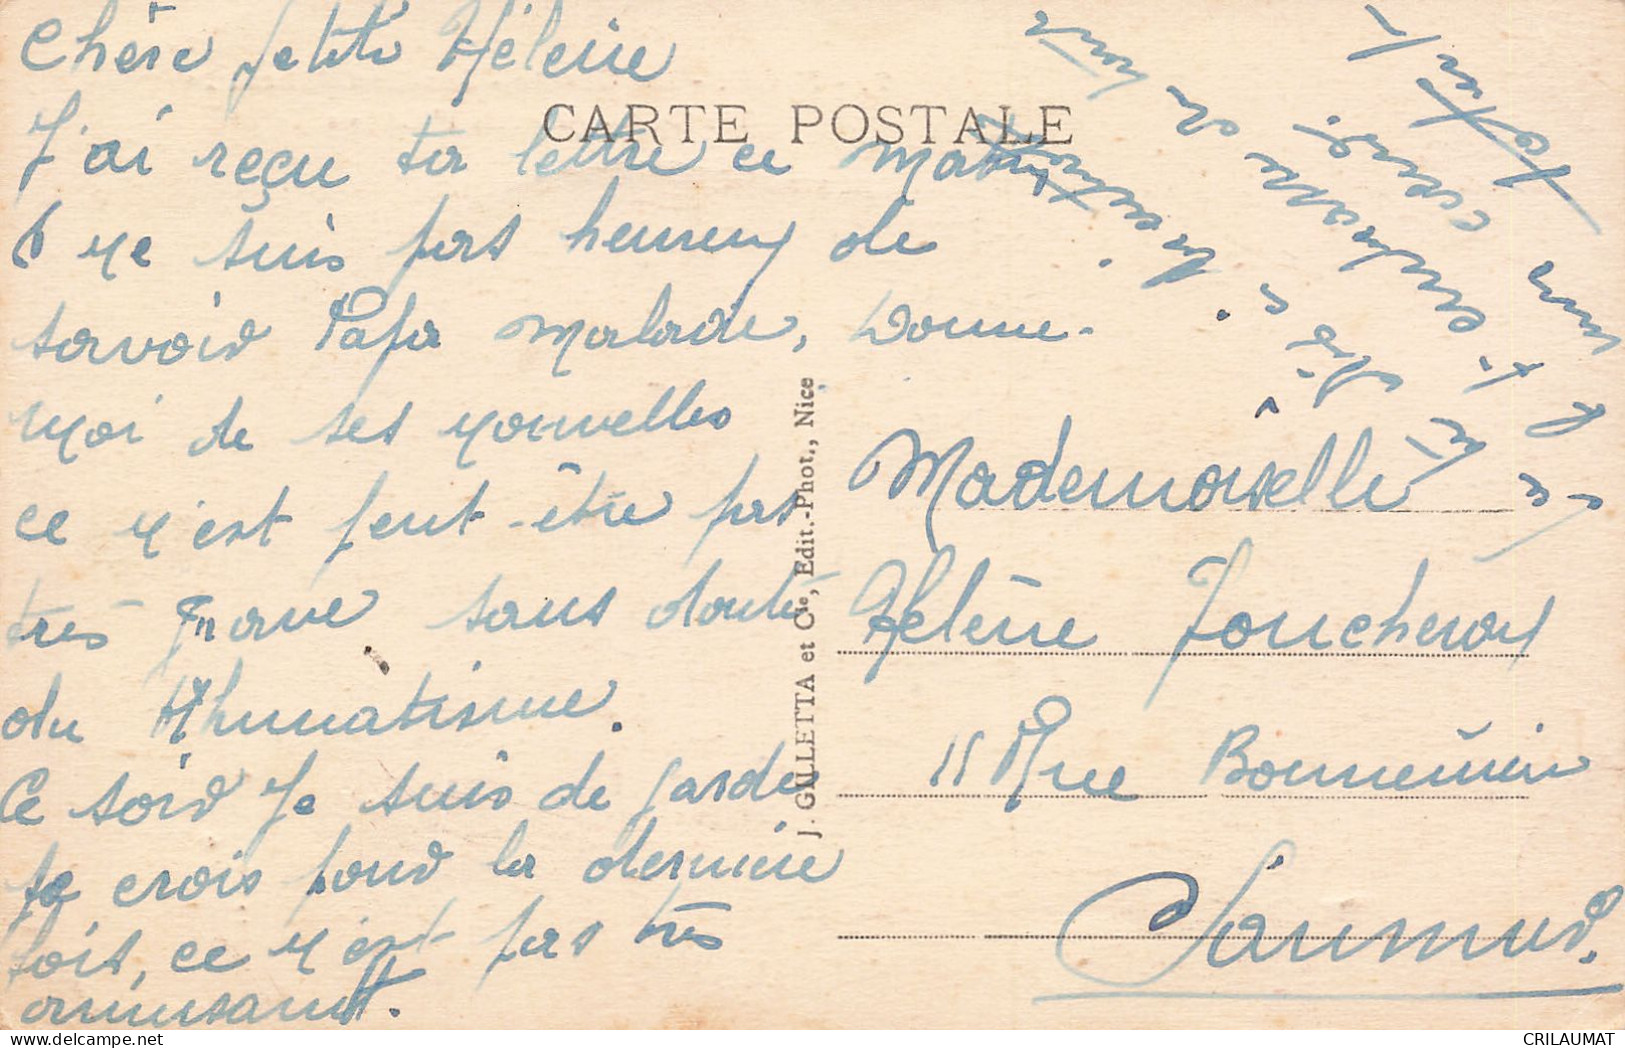 CARTE POSTALE
Chère petite Hélène
J'ai reçu ta lettre ce matin
ne suis pas heureux de
savoir Papa malade, Donne-
moi de ses nouvelles
ce n'est peut-être pas
très grave sans doute
du Rhumatisme.
Ce soir je suis de garde
je crois pour la dernière
fois, ce n'est pas très
amusant.
J. GILLETTA et Cie, Edit.-Phot., Nice
Mademoiselle
Hélène Joucheray
11 Rue Bonnemère
Saumur.
CRILAUMAT